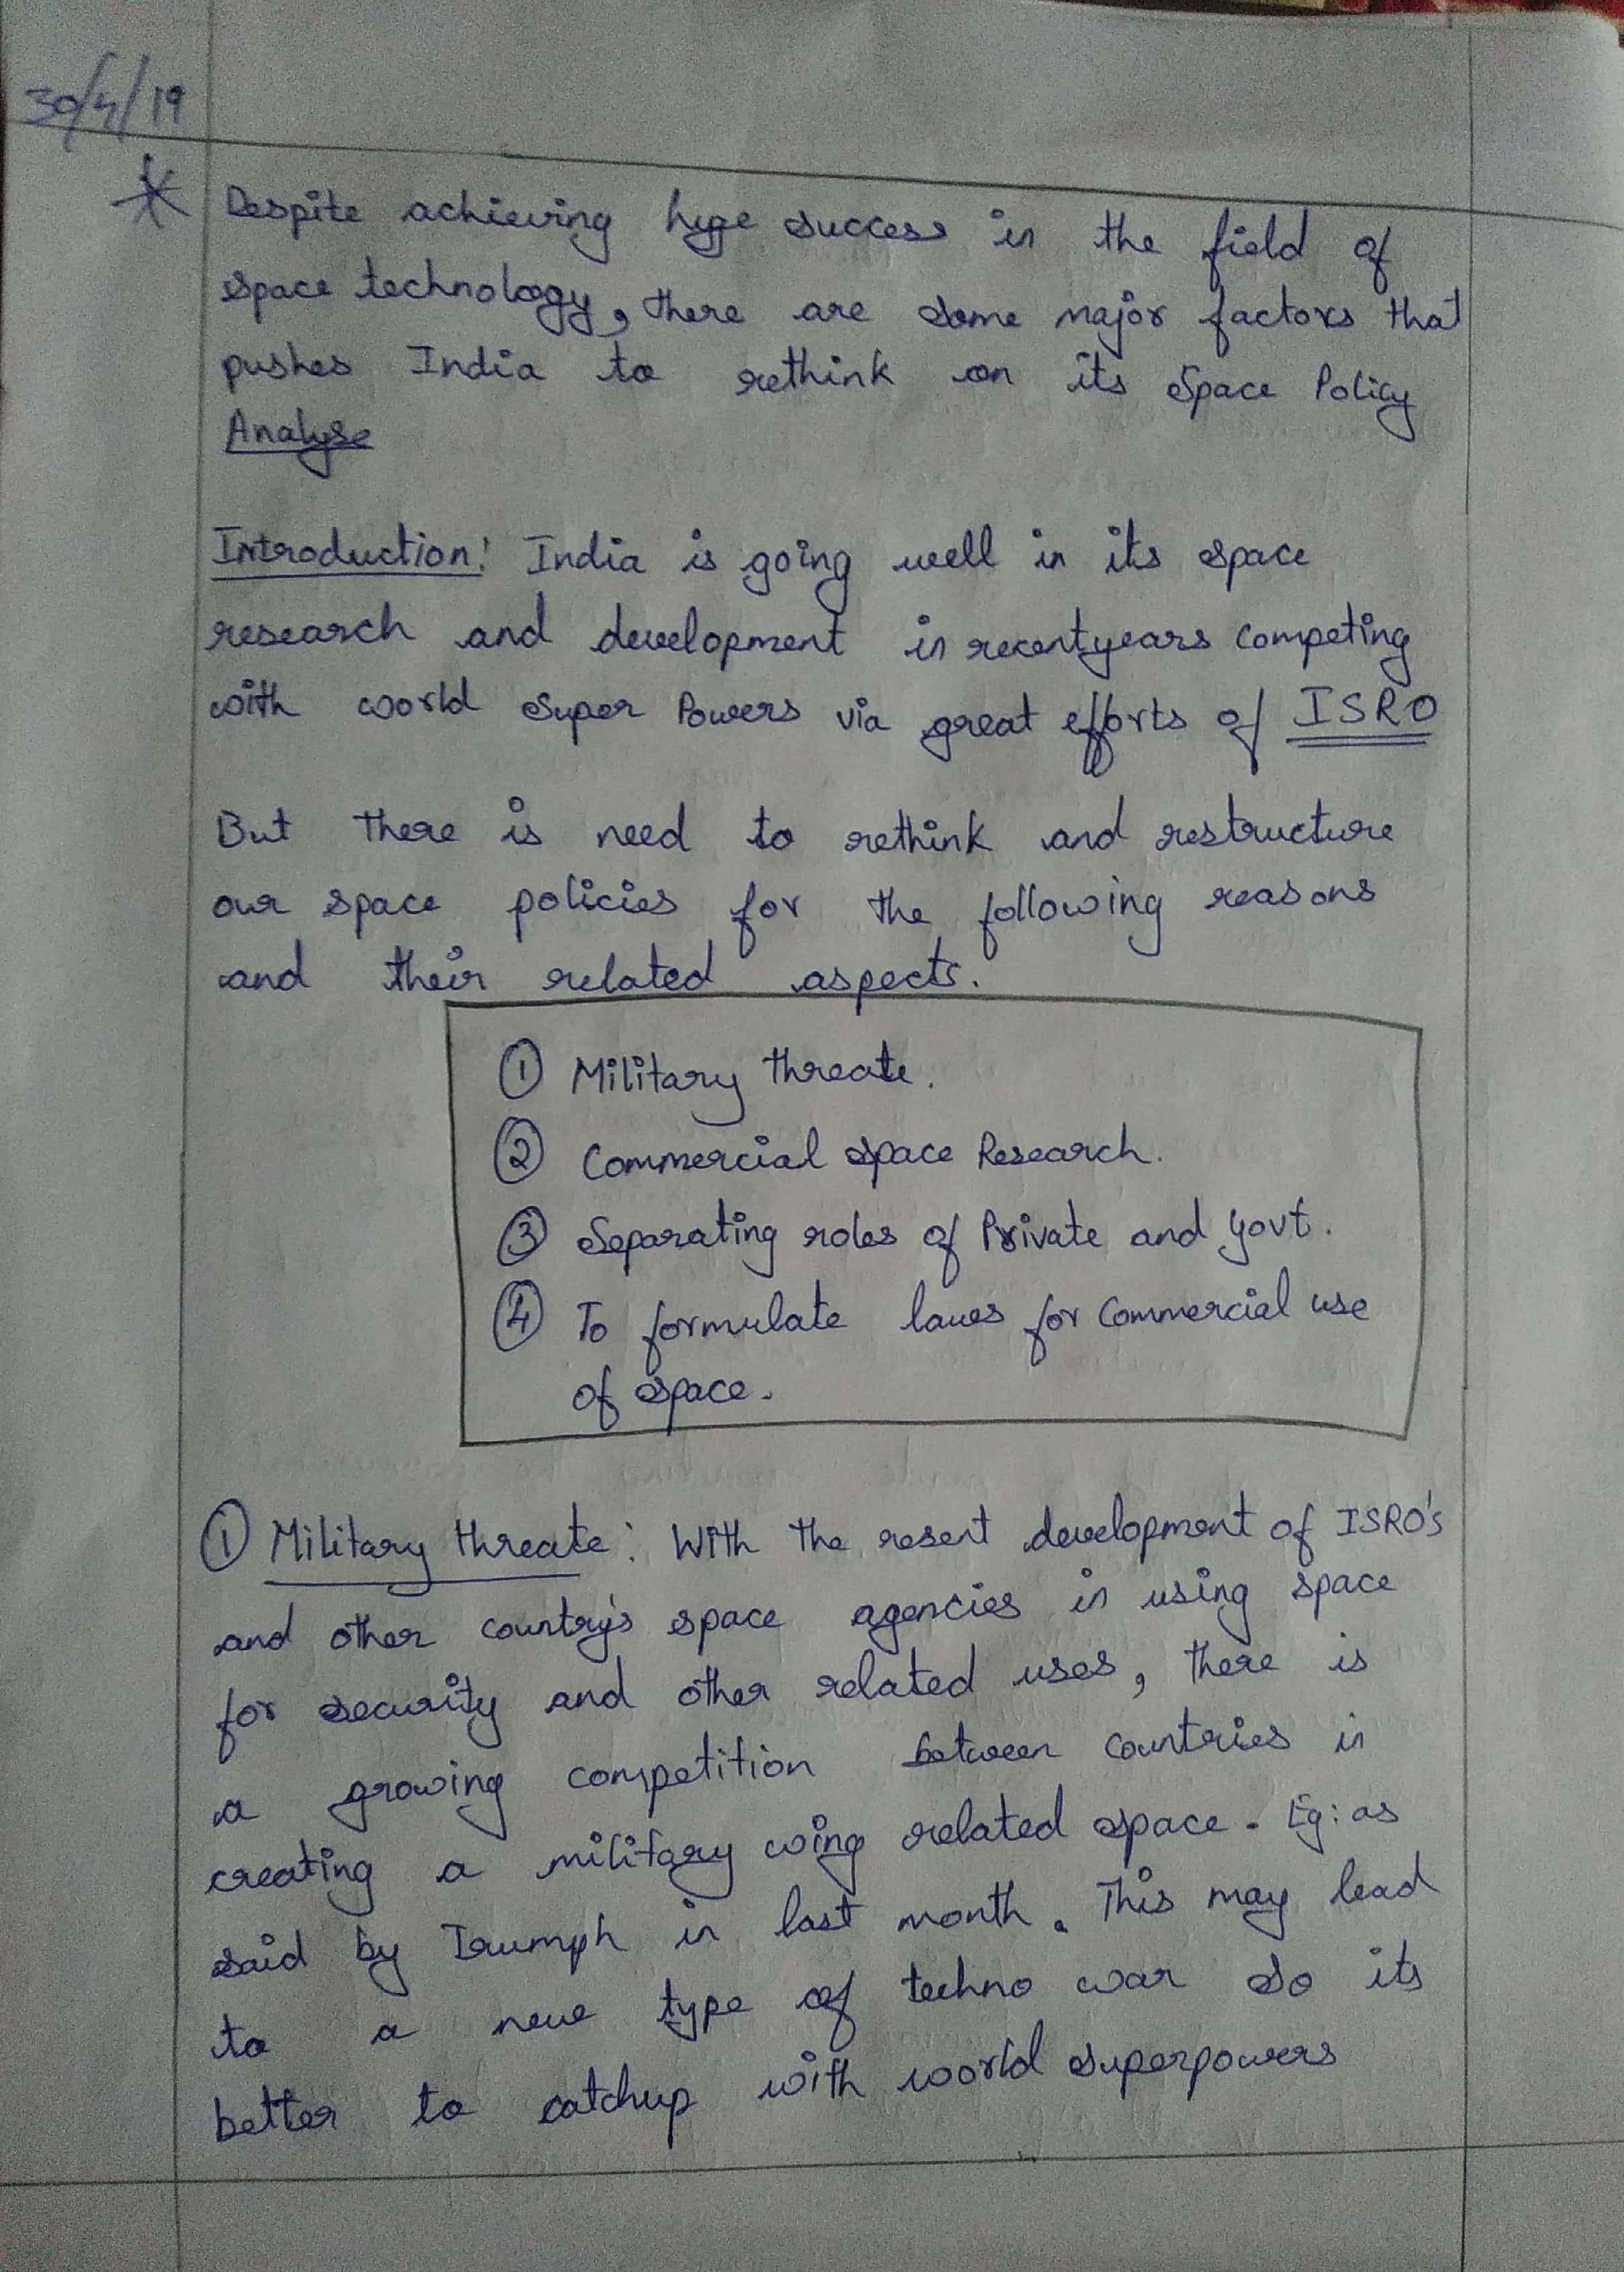 30/4/19
* Despite achieving huge success in the field of
space technology, there are some major factors that
pushes India to rethink on its Space Policy
Analyse
Introduction: India is going well in its space
research and development in recent years competing
with world Super Powers via great efforts of ISRO
But there is need to rethink and restructure
our space policies for the following reasons
and their related aspects.
① Military threate.
② Commercial space Research.
③ Separating roles of Private and govt.
④ To formulate laws for Commercial use
of space.
① Military threate: With the resent development of ISRO's
and other country's space agencies in using space
for security and other related uses, there is
a growing competition between countries in
creating a military wing related space. Eg: as
said by Trumph in last month. This may lead
to a new type of techno war so its
better to catchup with world superpowers